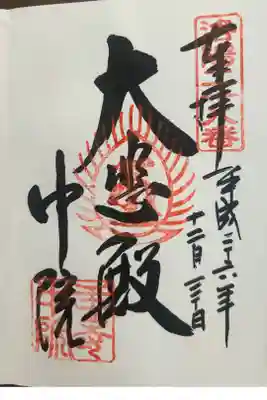 奉拝
平成二十六年
十二月三十日
大悲殿
中院